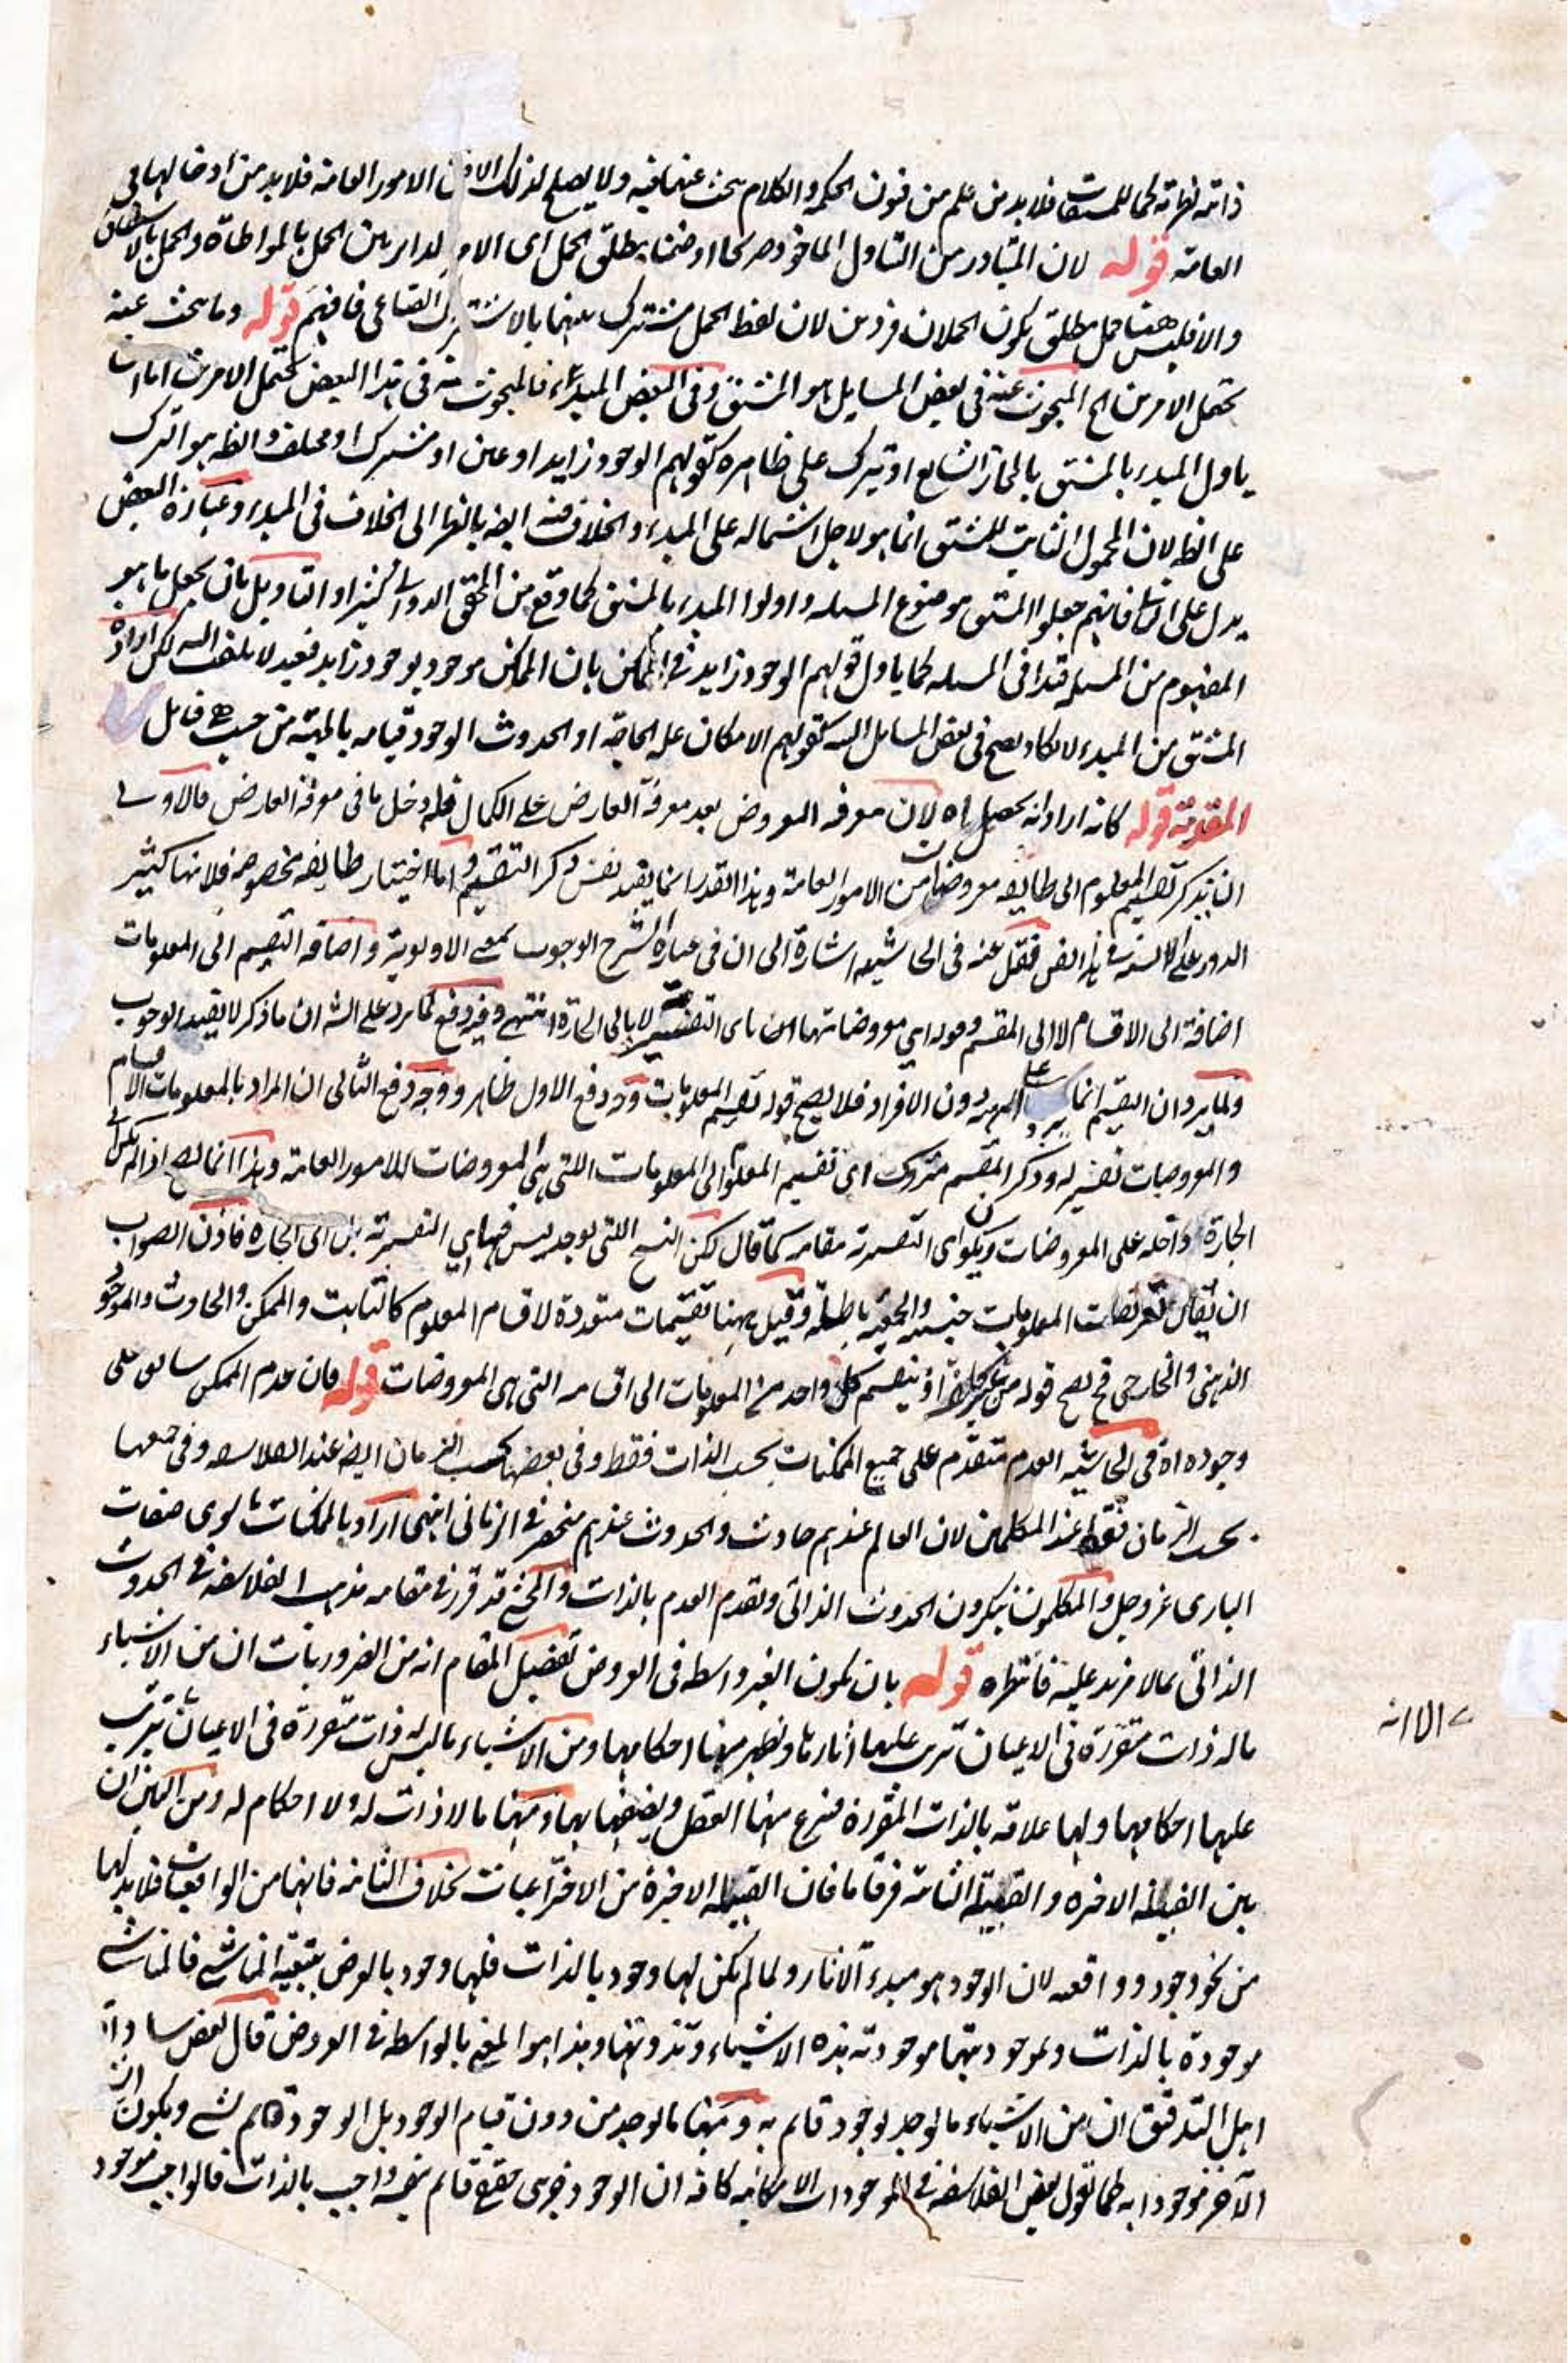 فلابد من علم من فنون الحكمة والكلام يبحث عنها فيه ولا يصلح لذلك الا الامور العامة فلابد من ادخالها في
العامة قوله لان المتبادر من التناول الماخوذ صريحا او ضمنا مطلق الحمل اى الامر الدائر بين الحمل بالمواطاة والحمل بالاشتقاق
والا فليس ههنا حمل مطلق يكون الحملان فردين لان لفظ الحمل مشترك بينهما بالاشتراك الصناعى فافهم قوله وما يبحث عنه
يحتمل الامرين اه المبحوث عنه فى بعض المسايل هو المشتق وفى البعض المبدء فالمبحوث عنه فى هذا البعض يحتمل الامرين اما ان
ياول المبدء بالمشتق بالمجاز الشايع او يترك على ظاهره كقولهم الوجود زايد او عين او مشترك او مختلف والظ هو الترك
على الظ لان المحمول الثابت للمشتق انما هو لاجل اشتماله على المبدء والخلاف فيه ايضا بالنظر الى الخلاف فى المبدء وعبارة البعض
يدل على فانهم جعلوا المشتق موضوع المسله واولوا المبدء بالمشتق كما وقع من المحقق الدوانى كثيرا والتاويل بان يجعل ما هو
المفهوم من المسله قيدا فى المسله كما ياول قولهم الوجود زايد فى الممكن بان الممكن موجود بوجود زايد فبعيد لا يلتفت اليه لكن ارادة
المشتق من المبدء لا يكاد يصح فى بعض المسايل البتة كقولهم الامكان علة الحاجة او الحدوث الوجود قيامه بالمهية من حيث هى قابل
المقدمة قوله كانه اراد انه يحصل اه لان معرفة المعروض بعد معرفة العارض على الكمال فله دخل ما فى معرفة العارض فالاولى
ان يذكر تقسيم المعلوم الى طايفة معروضات من الامور العامة وهذا القدر انما يفيد نفس ذكر التقسيم واما اختيار طايفة مخصوصة فلانها كثير
الدور على الالسنة فى هذا الفن فنقل عنه فى الحاشية اشارة الى ان فى عبارة الشرح الوجوب بمعنى الاولوية واضافة التقسيم الى المعلومات
اضافة الى الاقسام لا الى المقسم وقوله اى معروضاتها اه باى التفسيرية لا بالى الجارة انتهى وفيه دفع لما يرد على الشه ان ما ذكر لا يفيد الوجوب
ولما يرد ان التقسيم انما يرد على المهية دون الافراد فلا يصح قوله تقسيم المعلومات وجه دفع الاول ظاهر ووجه دفع الثانى ان المراد بالمعلومات الاقسام
والمعروضات تفسير له وذكر المقسم متروك اى تقسيم المعلوم الى المعلومات اللتى هى المعروضات للامور العامة وهذا انما يصح اذا لم يكن الى
الجارة داخلة على المعروضات ويكون اى التفسيرية مقامه كما قال لكن النسخ اللتى توجد ليس فيها اى التفسيرية بل الى الجارة فاذن الصواب
ان يقال المعلومات جنسية والجمعية باطلة وقيل ههنا تقسيمات متعددة لاقسام المعلوم كالثابت والممكن والحادث والموجود
الذهنى والخارجى فح يصح قوله من غير او ينقسم كل واحد من المعلومات الى اقسامه التى هى المعروضات قوله فان عدم الممكن سابق على
وجوده اه فى الحاشية العدم متقدم على جميع الممكنات بحسب الذات فقط وفى بعضها بحسب الزمان ايضا عند الفلاسفه وفى جميعها
بحسب الزمان فقط عند المتكلمين لان العالم عندهم حادث والحدوث عندهم منحصر فى الزمانى انتهى اراد بالممكنات ما سوى صفات
البارى عز وجل والمتكلمون ينكرون الحدوث الذاتى وتقدم العدم بالذات والمحشى قد قرر فى مقامه مذهب الفلاسفه فى الحدوث
الذاتى بما لا مزيد عليه فانتظره قوله بان يكون الغير واسطة فى العروض تفصيل المقام انه من الضروريات ان من الاشياء
ماله ذات متقررة فى الاعيان يترتب عليها اثارها ويظهر منها احكامها ومن الاشياء ما ليس له ذات متقررة فى الاعيان يترتب
عليها احكامها ولها علاقة بالذات المتقررة فينتزع منها العقل ويصفها بها ومنها ما لا ذات له ولا احكام له ومن البين ان
بين القبيلة الاخيرة والقبيلة الثانية فرقا ما فان القبيلة الاخيرة من الاختراعيات بخلاف الثانية فانها من الواقعيات فلابد لها
من نحو وجود وواقعية لان الوجود هو مبدء الاثار ولما لم يكن لها وجود بالذات فلها وجود بالعرض بتبعية المناشى فالمناشى
موجودة بالذات ولموجوديتها موجودية هذه الاشياء وتذوتها وهذا هو المعنى بالواسطة فى العروض قال بعض سادات
اهل التدقيق ان من الاشياء ما يوجد بوجود قائم به ومنها ما يوجد من دون قيام الوجود بل الوجود قائم بشى ويكون
الاخر موجودا به كما تقول بعض الفلاسفة فى الموجودات الامكانيه كافة ان الوجود جزئى حقيقى قائم بنفسه واجب بالذات فالواجب موجود